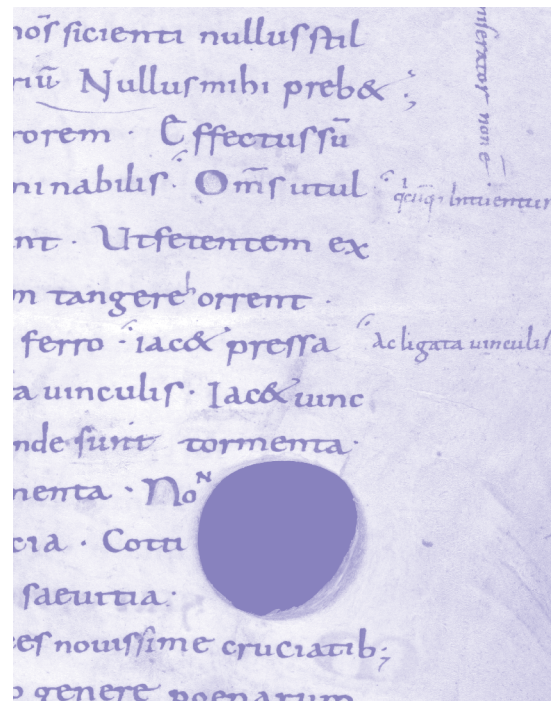 hoс̄ sicienti nullus stil
riū Nullus mihi preb& ;
rorem · Effectus sū
minabilis · Om̄s utul
nt · Ut fetentem ex
m tangere horrent ·
ferro · iac& pressa
a uinculis · Iac& uinc
nde sunt tormenta ·
menta · Non
cia · Cotti
saeuitia ·
ces nouissime cruciatib;
o genere poenarum
miserator non ē
Intuentur
ac ligata uinculis